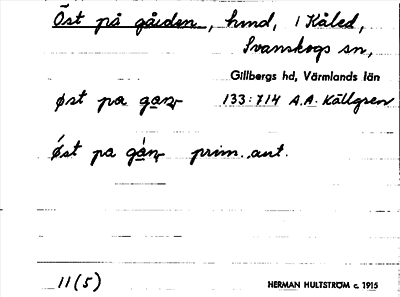 Öst på gården, hmd, i Kåled,
Svanskogs sn,
Gillbergs hd, Värmlands län
øst pa gan 133:714 A.A. Källgren
øst pa gán prim. ant.
11(5) HERMAN HULTSTRÖM c. 1915